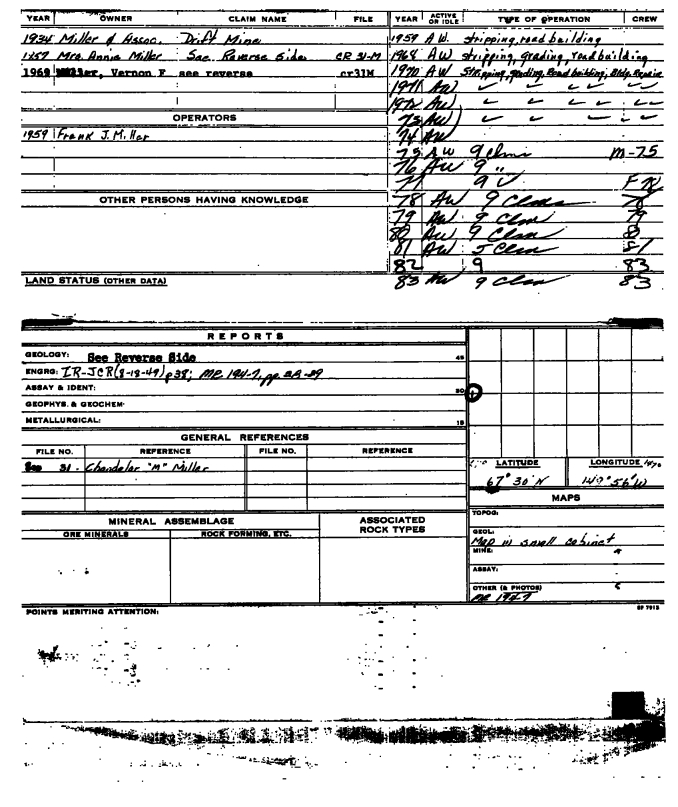 YEAR OWNER CLAIM NAME FILE
1934 Miller & Assoc. Drift Mine
1959 Mrs. Annie Miller See Reverse Side CR 31-M
1969 Vernon F see reverse cr31M
OPERATORS
1959 Frank J. Miller
OTHER PERSONS HAVING KNOWLEDGE
LAND STATUS (OTHER DATA)
YEAR ACTIVE OR IDLE TYPE OF OPERATION CREW
1959 A W. stripping, road building
1968 A W stripping, grading, road building
1970 A W Stripping, grading, Road building, Bldg. Repair
1971 AW ✓ ✓ ✓✓ ✓✓
1972 AW ✓ ✓ ✓✓ ✓✓
73 AW ✓ ✓ ✓✓ ✓✓
74 AW
75 AW 9 Clms M-75
76 AW 9 "
77 9 ✓
78 AW 9 Clms 78
79 AW 9 Clm 79
80 AW 9 Clm 80
81 AW 5 Clm 81
82 9 83
83 AW 9 Clm 83
REPORTS
GEOLOGY: See Reverse Side 45
ENGRG: IR-JCR(8-18-49) p38; MR 194-7, pp 28-29
ASSAY & IDENT: 30
GEOPHYS. & GEOCHEM.
METALLURGICAL: 15
GENERAL REFERENCES
FILE NO. REFERENCE FILE NO. REFERENCE
31 - Chandalar "M" Miller
LATITUDE LONGITUDE
67° 30' N 149° 56' W
MAPS
TOPOG:
GEOL:
Map in small cabinet
MINE:
ASSAY:
OTHER (& PHOTOS)
MR 194-7
MINERAL ASSEMBLAGE
ORE MINERALS ROCK FORMING, ETC.
ASSOCIATED ROCK TYPES
POINTS MERITING ATTENTION: